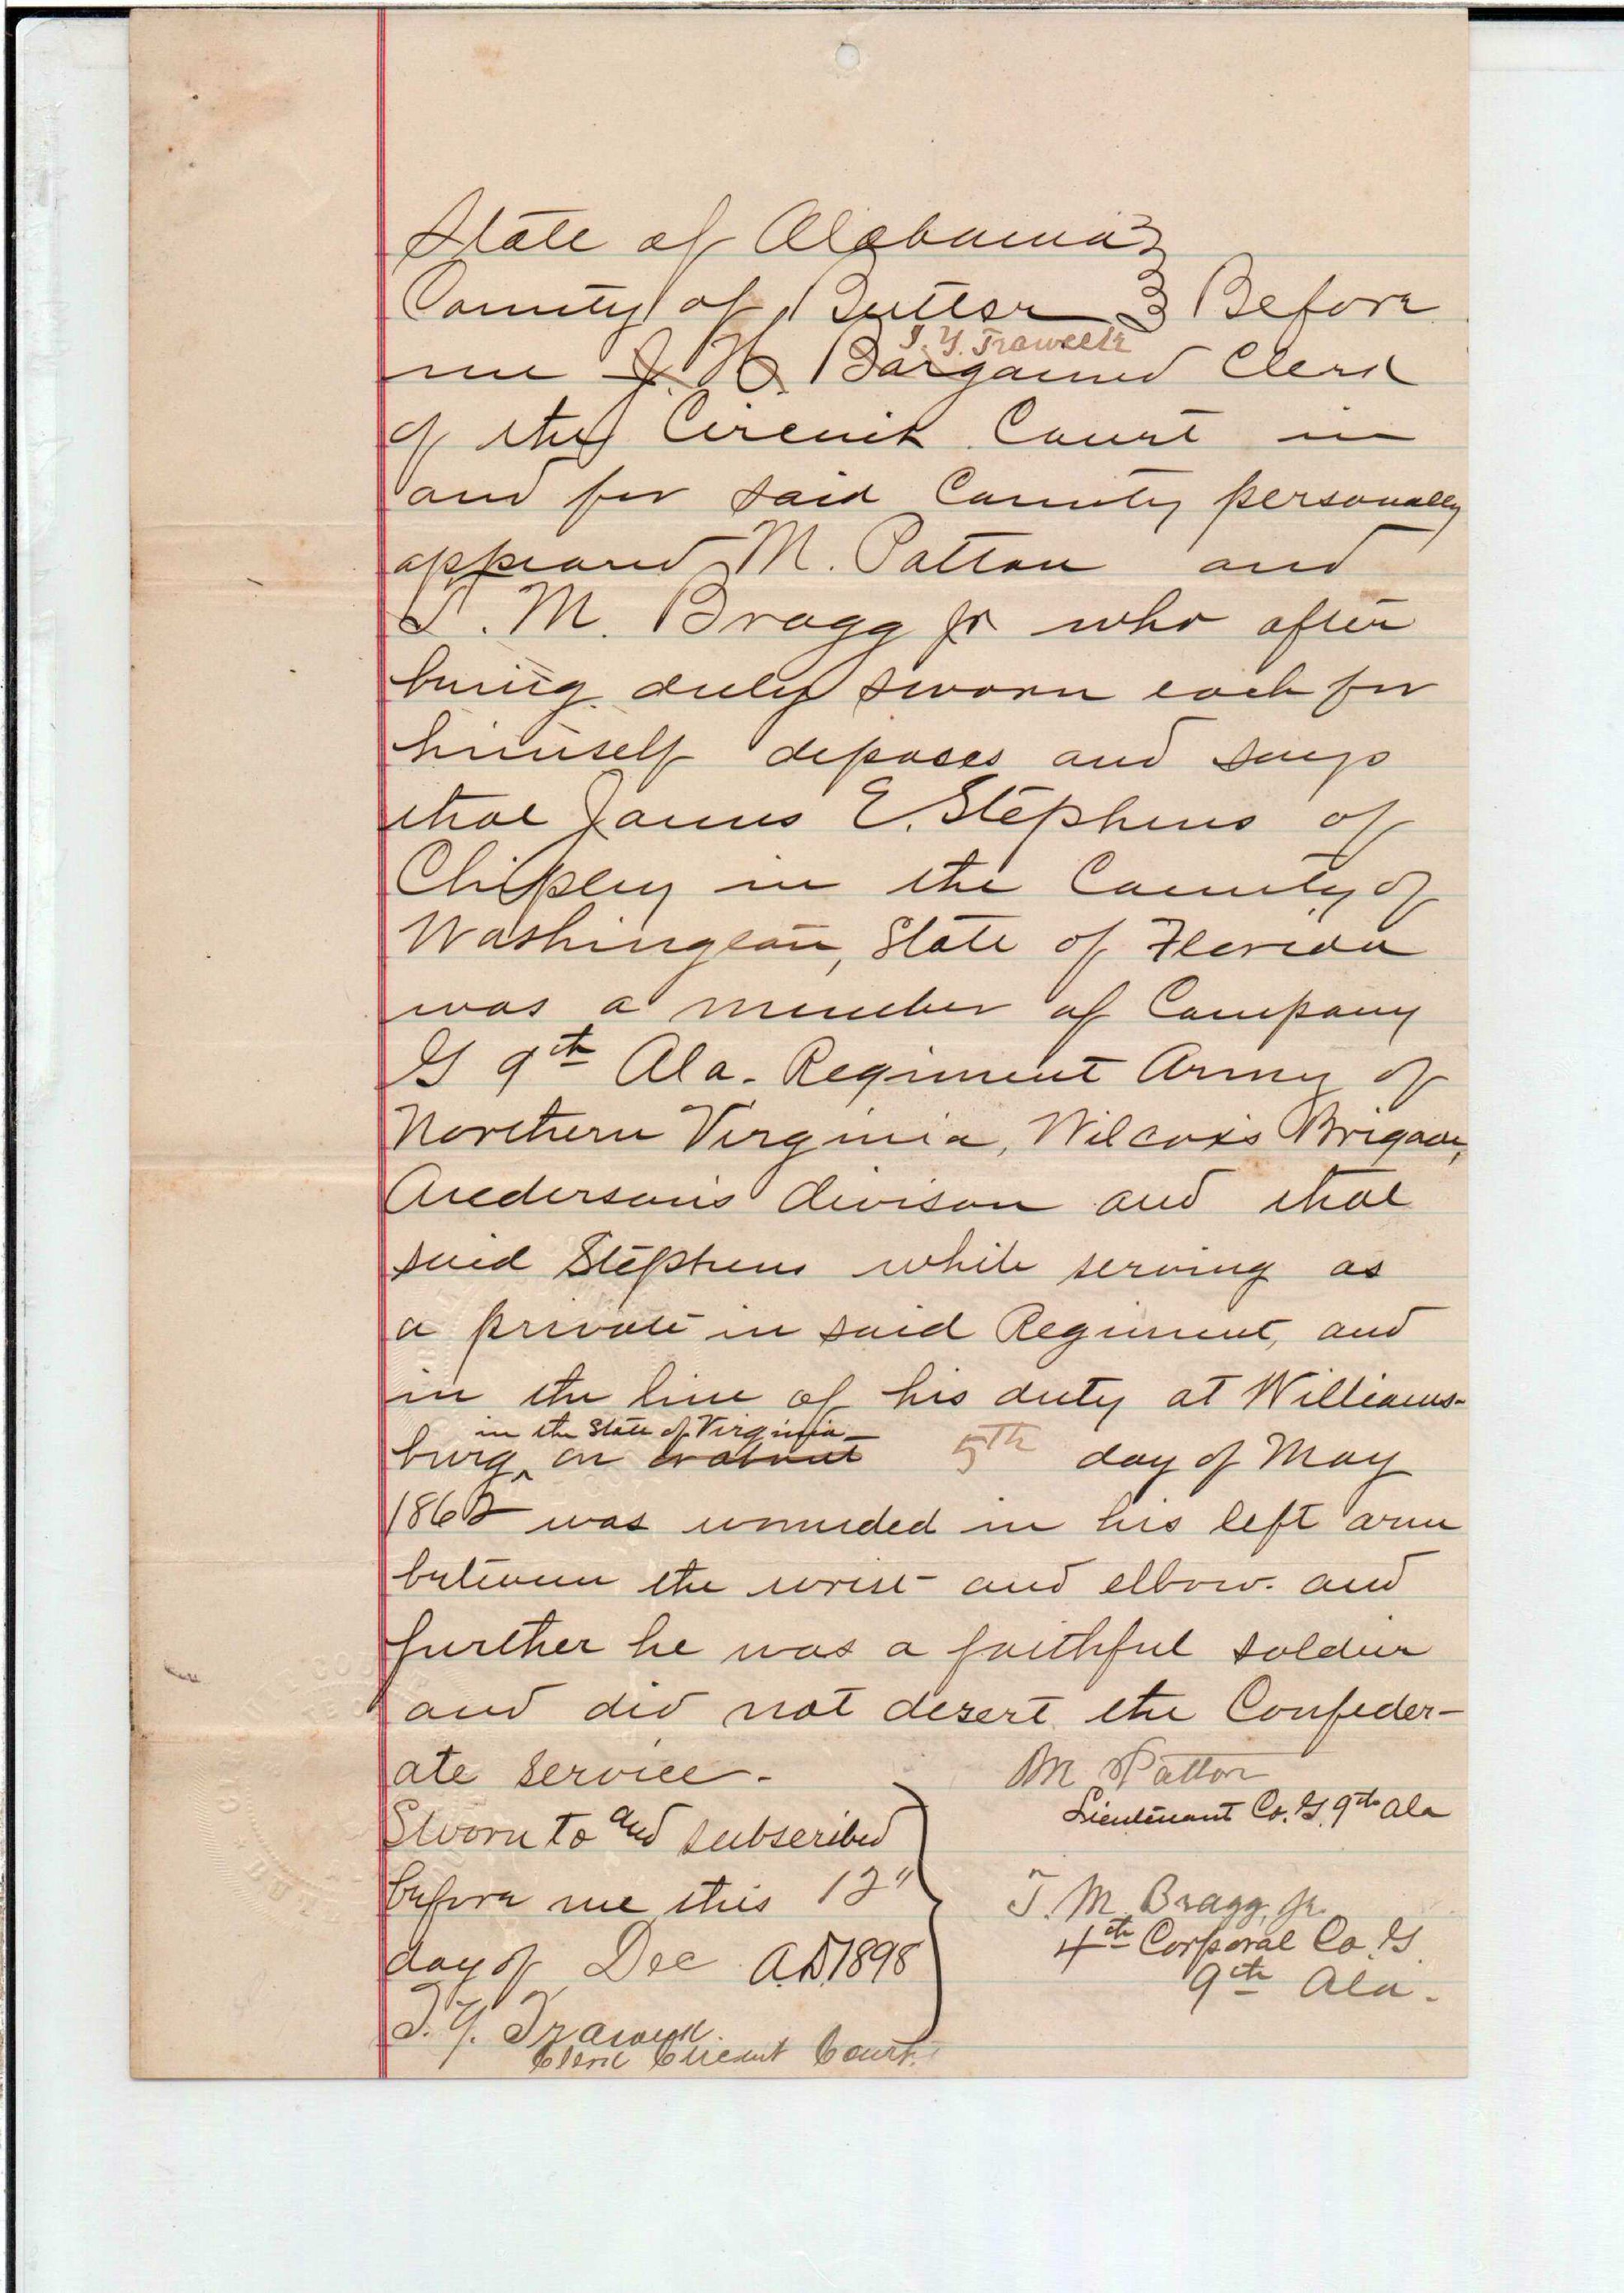 State of Alabama }
County of Butler } Before
T. Y. Traweek
me J. H. Bargained Clerk
of the Circuit Court in
and for said County personally
appeared M. Patton and
T. M. Bragg Jr who after
being duly sworn each for
himself deposes and says
that James E. Stephens of
Chipley in the County of
Washington, State of Florida
was a member of Company
G 9th Ala. Regiment Army of
Northern Virginia, Wilcox's Brigade,
Anderson's divison and that
said Stephens while serving as
a private in said Regiment, and
in the line of his duty at Williams-
in the State of Virginia
burg, on or about 5th day of May
1862 was wounded in his left arm
between the wrist and elbow. and
further he was a faithful soldier
and did not desert the Confeder-
ate service.
M Patton
Lieutenant Co. G. 9th Ala
Sworn to and subscribed
before me this 12"
day of Dec A.D. 1898
T. Y. Traweek
Clerk Circuit Court.
T. M. Bragg, Jr.
4th Corporal Co. G
9th Ala.